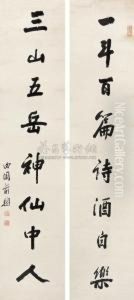 一斗百篇詩酒自樂
三山五岳神仙中人